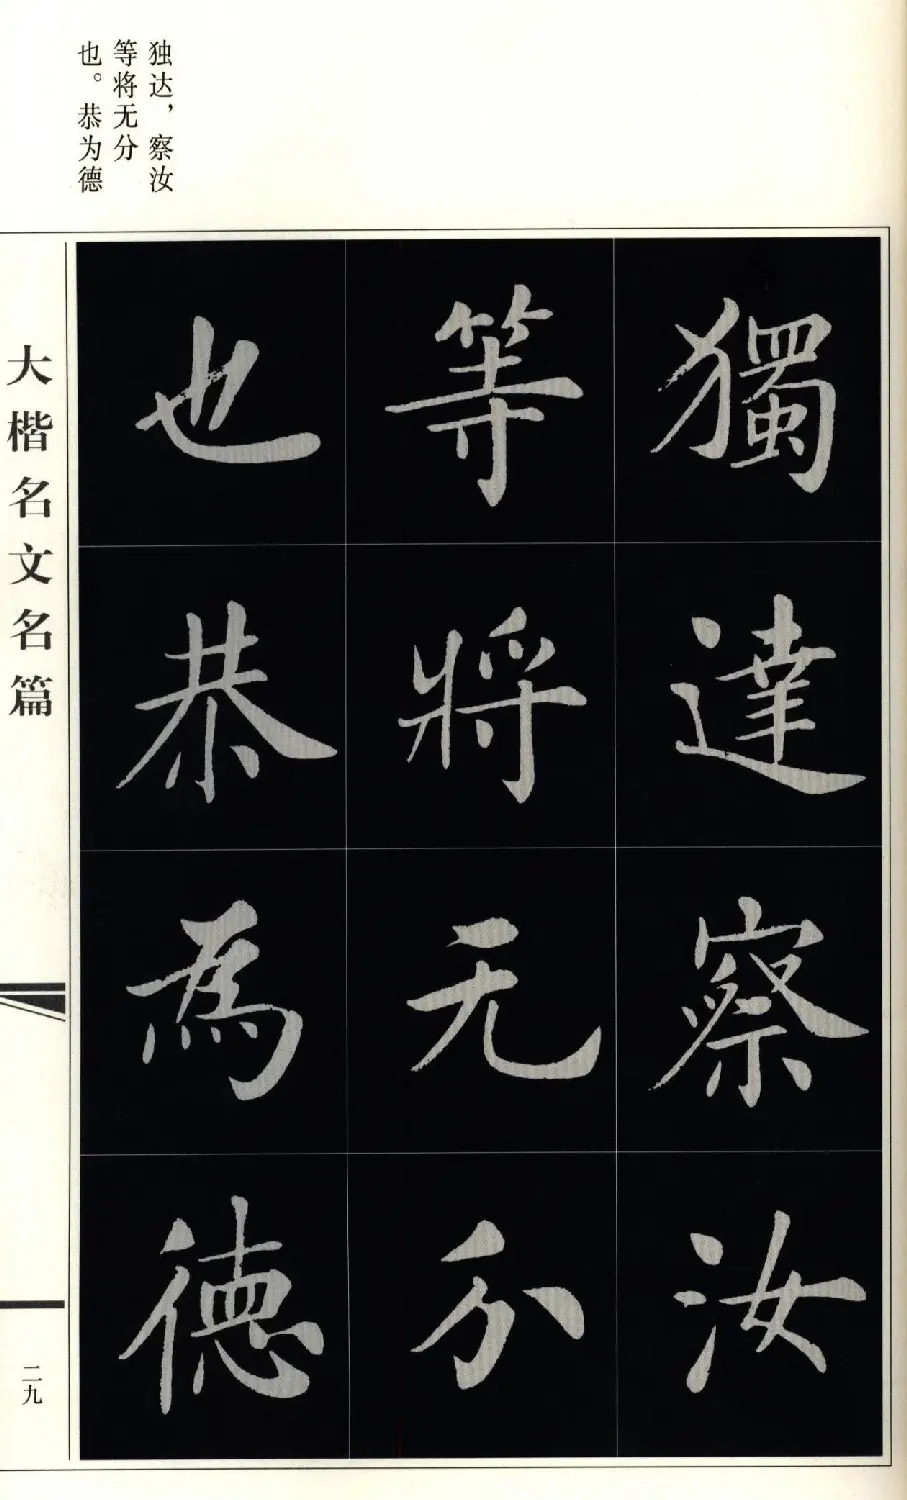 独达，察汝
等将无分
也。恭为德
獨達察汝
等將无分
也恭為德
大楷名文名篇
二九